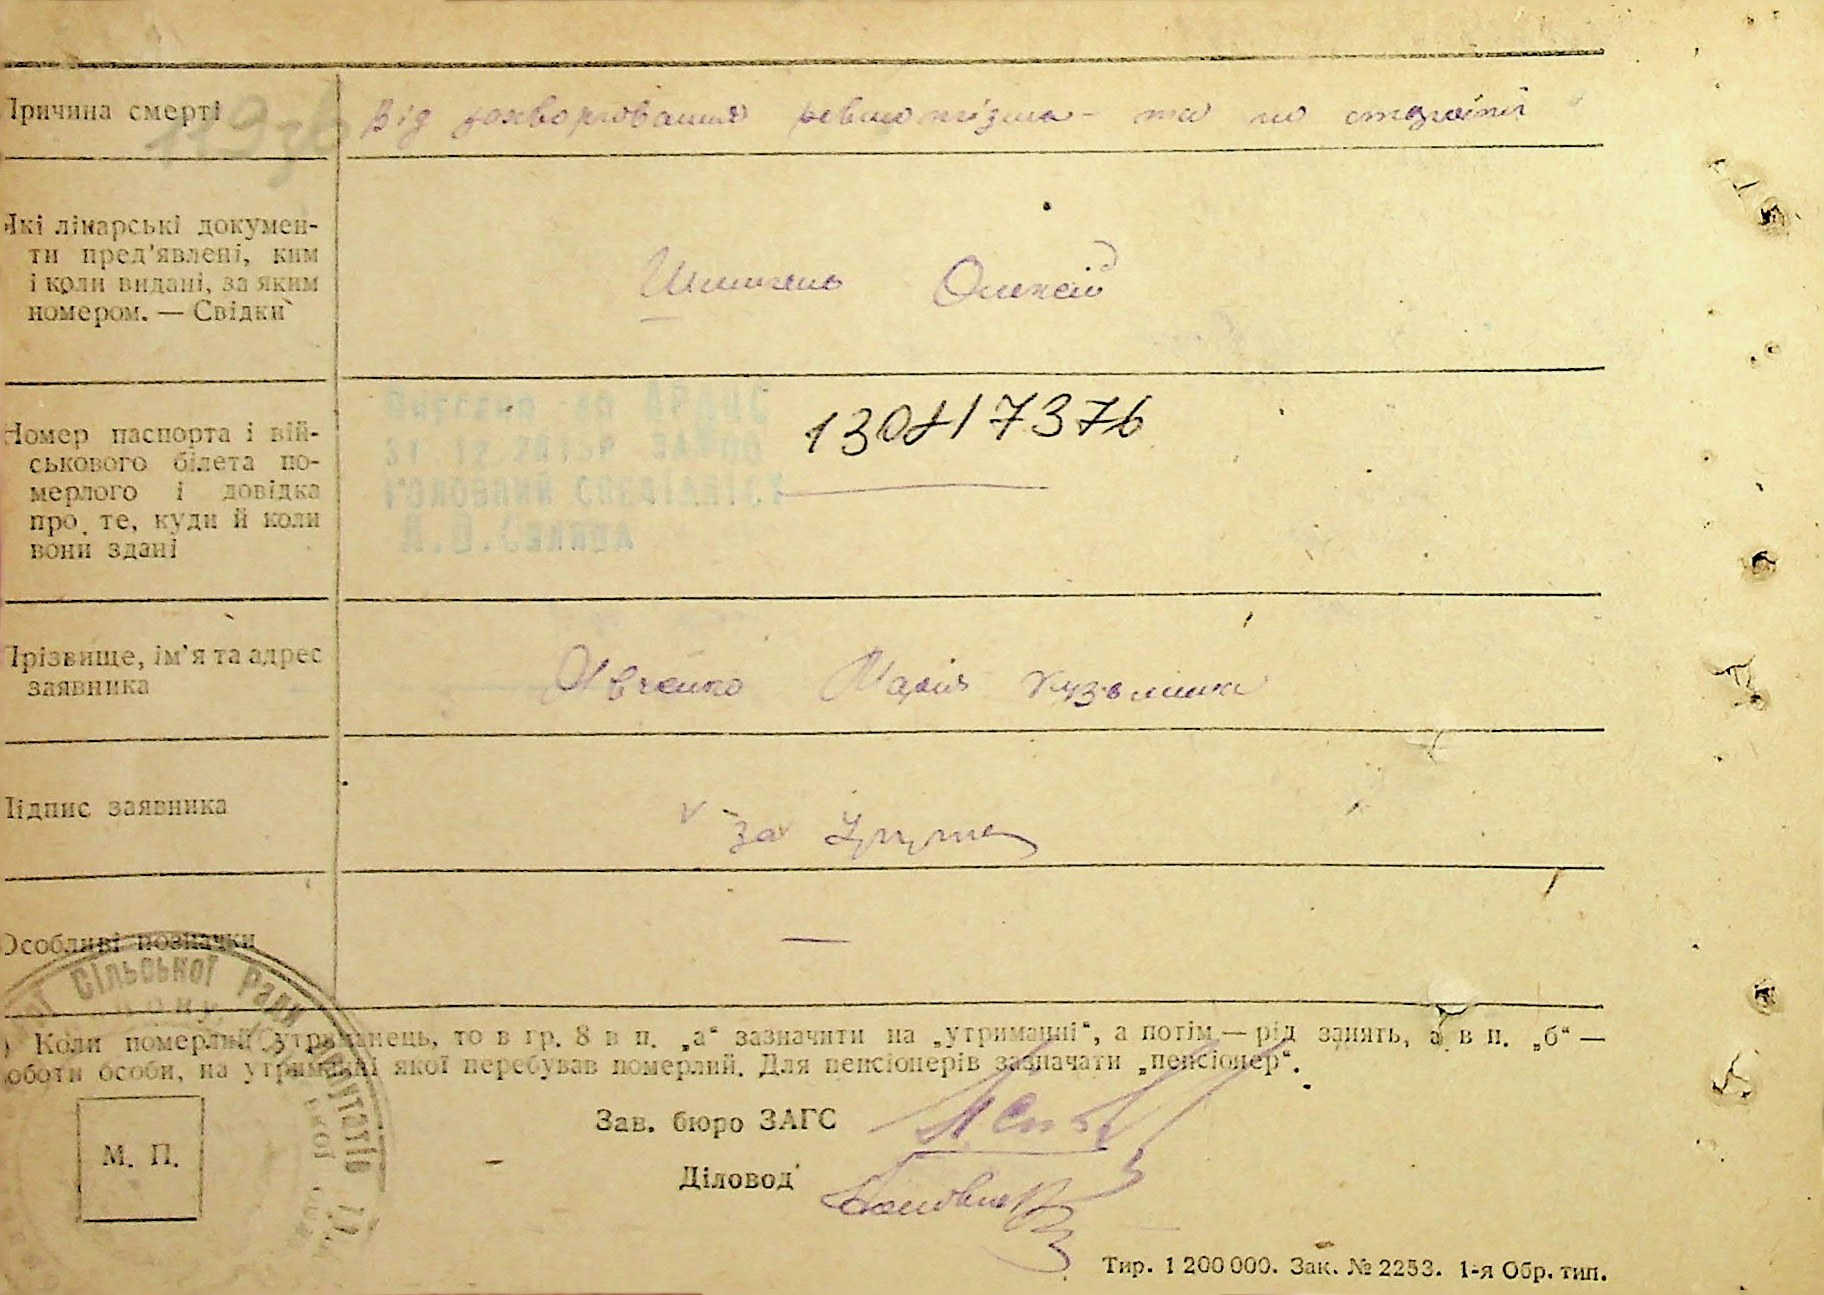 Причина смерті
Від захворювання ревматізма - та по старості
Які лікарські докумен-
ти пред'явлені, ким
і коли видані, за яким
номером. — Свідки
Олексій
Номер паспорта і вій-
ськового білета по-
мерлого і довідка
про те, куди й коли
вони здані
Внесено до ДРАЦС
31.12.2015р. ЗАПОВ
ГОЛОВНИЙ СПЕЦІАЛІСТ
130417376
Прізвище, ім'я та адрес
заявника
Явченко Марія Кузьмінична
Підпис заявника
за
Особливі позначки
—
Сільської Ради депутатів
) Коли померлий утриманець, то в гр. 8 в п. „а“ зазначити на „утриманні“, а потім — рід занять, а в п. „б“ —
роботи особи, на утриманні якої перебував померлий. Для пенсіонерів зазначати „пенсіонер“.
Зав. бюро ЗАГС
М. П.
Діловод
Тир. 1 200 000. Зак. № 2253. 1-я Обр. тип.